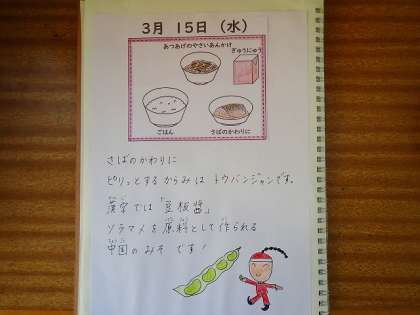 3月 15日（水）
あつあげのやさいあんかけ
ぎゅうにゅう
ごはん
さばのかわりに
さばのかわりに
ピリッとするからみは トウバンジャンです。
漢字では「豆板醤」
ソラマメを原料として作られる
中国のみそです！